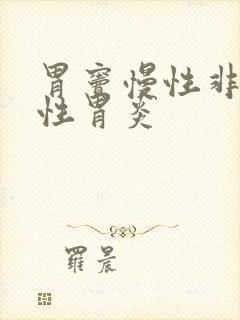 胃窦慢性非
性胃炎
羅晨